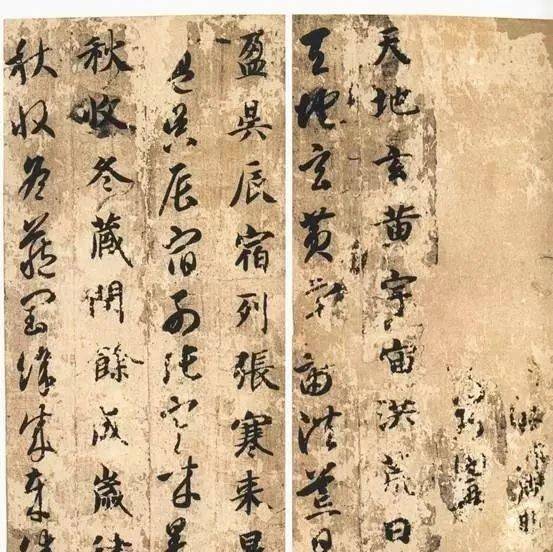 天地玄黄宇宙洪荒日
天地玄黄宇宙洪荒日
盈昃辰宿列張寒来暑
盈昃辰宿列張寒来暑
秋收冬藏閏餘成歲律
秋收冬藏閏餘成歲律